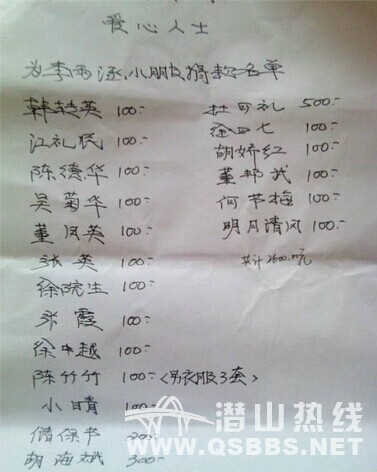 爱心人士
为李雨涵小朋友捐款名单
韩转英 100:-
江礼民 100:-
陈德华 100:-
吴菊华 100:-
董凤英 100:-
张英 100:-
徐院生 100:-
张霞 100:-
徐中越 100:-
陈竹竹 100:-〈另衣服3套〉
小晴 100:-
储保节
胡海斌 300:-
杜可礼 500:-
徐四七 100:-
胡娇红 100:-
董邦武 100:-
何节梅 100:-
明月清风 100:-
共计2600.00元
潜山热线
WWW.QSBBS.NET